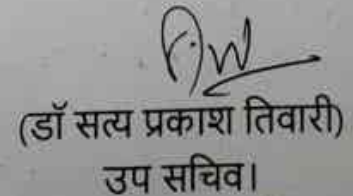 (डॉ सत्य प्रकाश तिवारी)
उप सचिव।